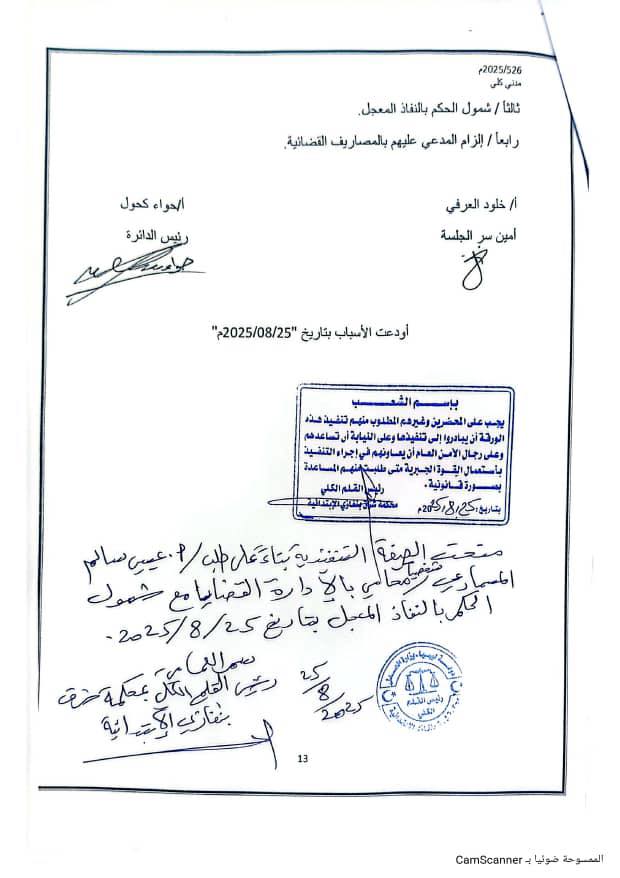 2025/526م
مدني كلي
ثالثاً / شمول الحكم بالنفاذ المعجل.
رابعاً / إلزام المدعي عليهم بالمصاريف القضائية.
أ/ خلود العرفي
أ/حواء كحول
أمين سر الجلسة
رئيس الدائرة
أودعت الأسباب بتاريخ "2025/08/25م"
بإســـم الشعـــب
يجب على المحضرين وغيرهم المطلوب منهم تنفيذ هذه
الورقة أن يبادروا إلى تنفيذها وعلى النيابة أن تساعدهم
وعلى رجال الأمن العام أن يعاونهم في إجراء التنفيذ
بأستعمال القوة الجبرية متى طلبت منهم المساعدة
بصورة قانونية.
رئيس القلم الكلي
محكمة شرق بنغازي الإبتدائية
بتاريخ: 25/8/2025م
منحت الصيغة التنفيذية بناءً على طلب / أ. عيسى سالم
المسماري شخصياً / محامي بالإدارة القضايا مع شمول
الحكم بالنفاذ المعجل بتاريخ 25/8/2025.
رئيس القلم الكلي بمحكمة شرق
بنغازي الإبتدائية
25/8/2025
رئيس القلم
الكلي
13
الممسوحة ضوئيا بـ CamScanner